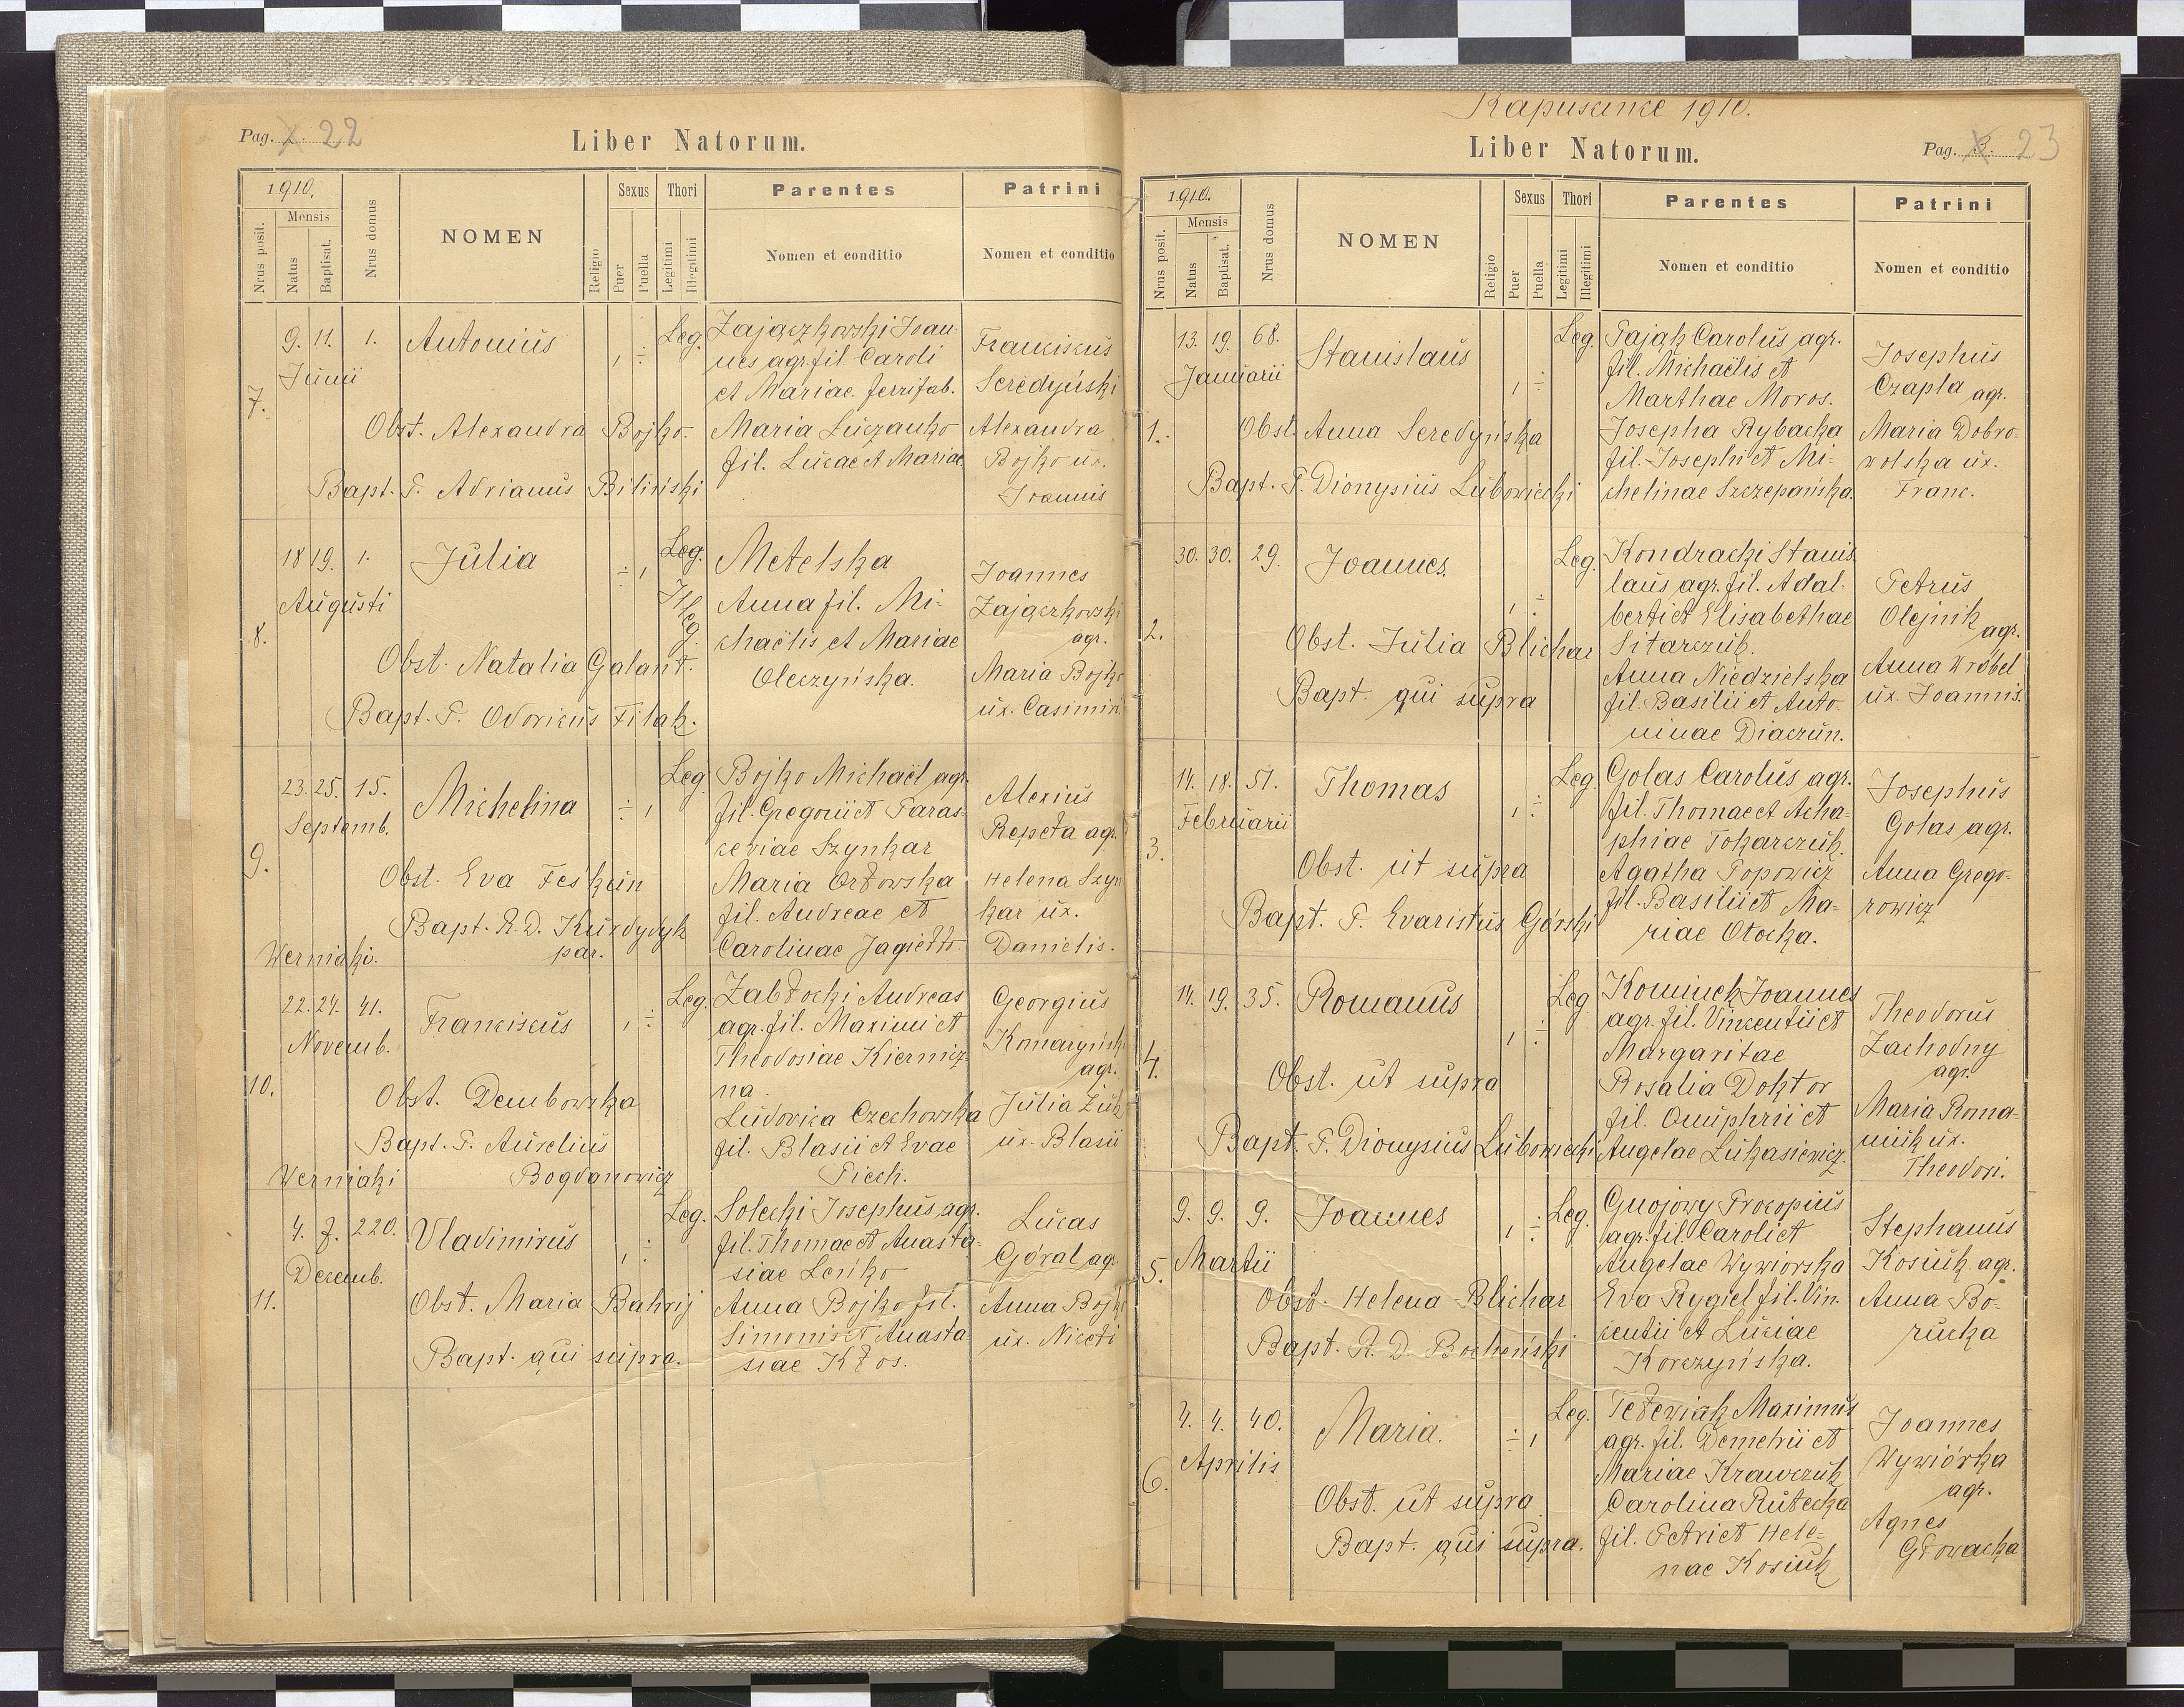 Pag. 2. 22
Liber Natorum.
1910.
Nrus posit.
Mensis
Natus
Baptisat.
Nrus domus
NOMEN
Religio
Sexus
Puer
Puella
Thori
Legitimi
Illegitimi
Parentes
Nomen et conditio
Patrini
Nomen et conditio
7.
9. 11. 1.
Junii
Antonius
Leg.
Obst. Alexandra Bojko.
Bapt. P. Adrianus Biliński
Zajączkowski Joan-
nes agr. fil. Caroli
et Mariae ferrifab.
Maria Luczanko
fil. Lucae et Mariae
Franciscus
Seredyński
Alexandra
Bojko ux.
Joannis
8.
18 19. 1.
Augusti
Julia
Leg.
Illeg.
Obst. Natalia Galant.
Bapt. P. Odoricus Filak.
Metelska
Anna fil. Mi-
chaëlis et Mariae
Olczyńska.
Joannes
Zajączkowski
agr.
Maria Bojko
ux. Casimiri
9.
23. 25. 15.
Septemb.
Michelina
Leg
Obst. Eva Feśkun
Bapt. R. D. Kurdydyk
par.
Werniaki.
Bojko Michaël agr.
fil. Gregorii et Paras-
ceviae Szynkar
Maria Orłowska
fil. Andreae et
Carolinae Jagiełło.
Alexius
Repeta agr.
Helena Szyn
kar ux.
Danielis.
10.
22. 24. 41.
Novemb.
Franciscus
Leg.
Obst. Dembowska
Bapt. P. Aurelius
Bogdanowicz
Werniaki
Zabłocki Andreas
agr. fil. Maximi et
Theodosiae Kiernicz-
na
Ludovica Czechowska
fil. Blasii et Evae
Piech.
Georgius
Komaryński
agr.
Julia Żuk
ux. Blasii
11.
4. 7. 220.
Decemb.
Vladimirus
Leg.
Obst. Maria Bahrij
Bapt. qui supra.
Solecki Josephus agr.
fil. Thomae et Anasta-
siae Leńko
Anna Bojko fil.
Simonis et Anasta-
siae Kłos.
Lucas
Góral agr
Anna Bojko
ux. Niceti
Kapuscince 1910.
Liber Natorum.
Pag. 3. 23
1910.
Nrus posit.
Mensis
Natus
Baptisat.
Nrus domus
NOMEN
Religio
Sexus
Puer
Puella
Thori
Legitimi
Illegitimi
Parentes
Nomen et conditio
Patrini
Nomen et conditio
1.
13. 19. 68.
Januarii
Stanislaus
Leg.
Obst. Anna Seredyńska
Bapt. P. Dionysius Lubowiecki
Pająk Carolus agr.
fil. Michaëlis et
Marthae Moros.
Josepha Rybacka
fil. Josephi et Mi-
chelinae Szczepańska.
Josephus
Czapla agr.
Maria Dobro-
wolska ux.
Franc.
2.
30. 30. 29.
Joannes.
Leg.
Obst. Julia Blichar
Bapt. qui supra
Kondracki Stanis
laus agr. fil. Adal-
berti et Elisabethae
Sitarczuk.
Anna Niedzielska
fil. Basilii et Anto-
ninae Diaczun.
Petrus
Olejnik
agr.
Anna Wróbel
ux. Joannis.
3.
14. 18. 51.
Februarii
Thomas
Leg.
Obst. ut supra
Bapt. P. Evaristus Górski
Golas Carolus agr.
fil. Thomae et Acha-
phiae Tokarczuk.
Agatha Popowicz
fil. Basilii et Ma-
riae Otocka.
Josephus
Golas agr.
Anna Grego-
rowicz
4.
14. 19. 35.
Romanus
Leg
Obst. ut supra
Bapt. P. Dionysius Lubowiecki
Kominek Joannes
agr. fil. Vincentii et
Margaritae
Rosalia Doktor
fil. Onuphrii et
Angelae Lukasiewicz.
Theodorus
Zachodny
agr.
Maria Roma-
niuk ux.
Theodori.
5.
9. 9. 9.
Martii
Joannes
Leg.
Obst. Helena Blichar
Bapt. R. D. Bocheński
Gnojowy Procopius
agr. fil. Caroli et
Angelae Wywiorska
Eva Rygiel fil. Vin-
centii et Luciae
Korczyńska.
Stephanus
Kosiuk agr.
Anna Bo-
rucka
6.
4. 4. 40.
Aprilis
Maria.
Leg.
Obst. ut supra
Bapt. qui supra.
Petewiak Maximus
agr. fil. Demetrii et
Mariae Krawczuk
Carolina Rutecka
fil. Petri et Hele-
nae Kosiuk
Joannes
Wywiórka
agr.
Agnes
Głowacka